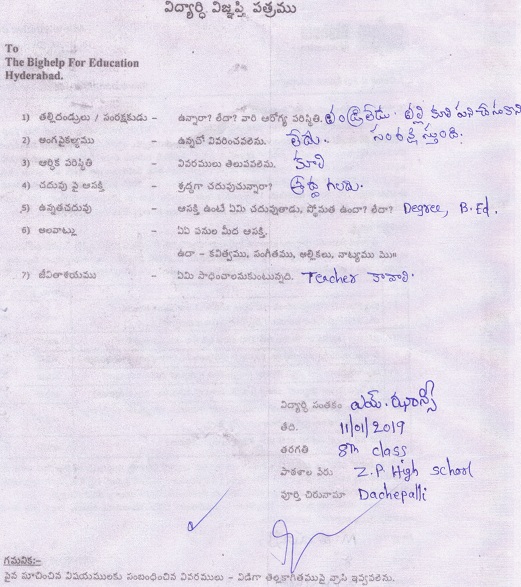 విద్యార్ధి విజ్ఞప్తి పత్రము
To
The Bighelp For Education
Hyderabad.
1) తల్లిదండ్రులు / సంరక్షకుడు - ఉన్నారా? లేదా? వారి ఆరోగ్య పరిస్థితి. తండ్రి లేడు. తల్లి కూలి పని చేసుకుని
సంరక్షిస్తుంది.
2) అంగవైకల్యము - ఉన్నచో వివరించవలెను. లేదు.
3) ఆర్ధిక పరిస్థితి - వివరములు తెలుపవలెను. కూలి
4) చదువు పై ఆసక్తి - శ్రద్ధగా చదువుచున్నారా? శ్రద్ధ గలదు.
5) ఉన్నతచదువు - ఆసక్తి ఉంటే ఏమి చదువుతాడు, స్తోమత ఉందా? లేదా? Degree, B.Ed.
6) అలవాట్లు - ఏఏ పనుల మీద ఆసక్తి.
ఉదా - కవిత్వము, సంగీతము, అల్లికలు, నాట్యము మొ॥
7) జీవితాశయము - ఏమి సాధించాలనుకుంటున్నది. Teacher కావాలి.
విద్యార్ధి సంతకం ఎమ్. ఝాన్సీ
తేది. 11/01/2019
తరగతి 8th class
పాఠశాల పేరు Z.P High school
పూర్తి చిరునామా Dachepalli
గమనిక:-
పైన సూచించిన విషయములకు సంబంధించిన వివరములు - విడిగా తెల్లకాగితముపై వ్రాసి ఇవ్వవలెను.